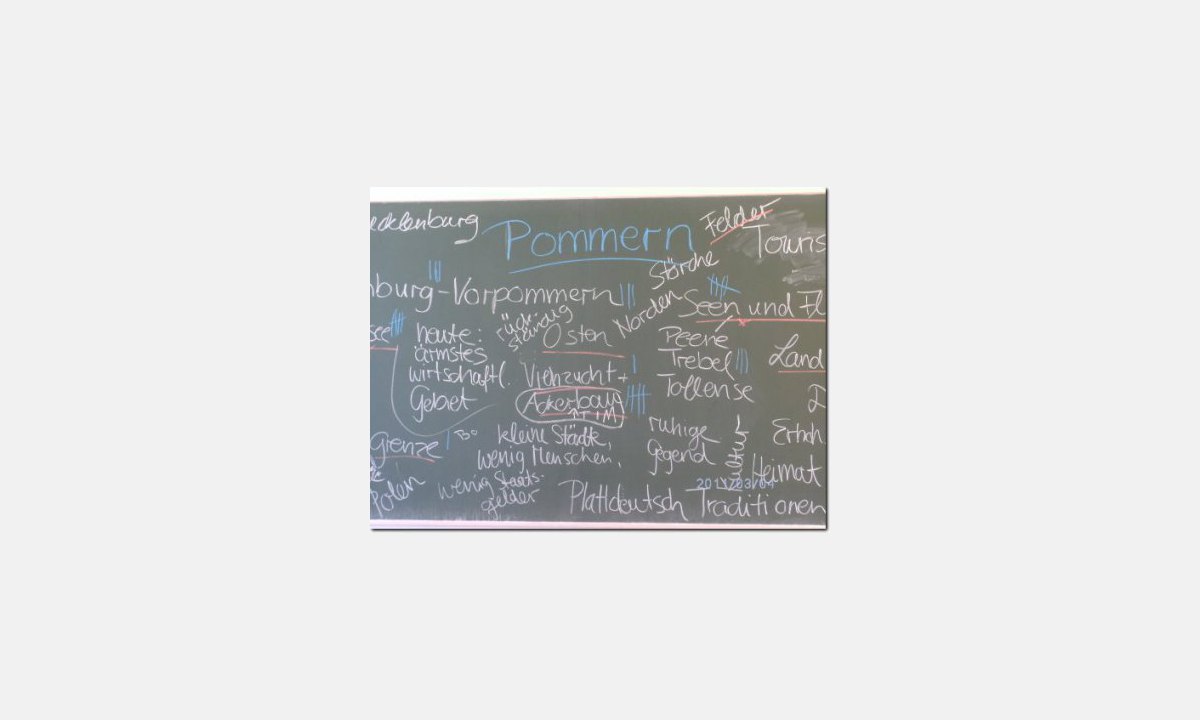 ecklenburg
Pommern
Felder
Touris
Störche
nburg-Vorpommern
Norden
Seen und Fl
see
heute:
ärmstes
wirtschaftl.
Gebiet
rück-
ständig
Osten
Peene
Trebel
Tollense
Land
Viehzucht +
Ackerbau
kleine Städte,
wenig Menschen,
wenig Staats-
gelder
ruhige
Gegend
Kultur
Erhoh
Heimat
Grenze
Polen
Plattdeutsch
Traditionen
2011/03/04